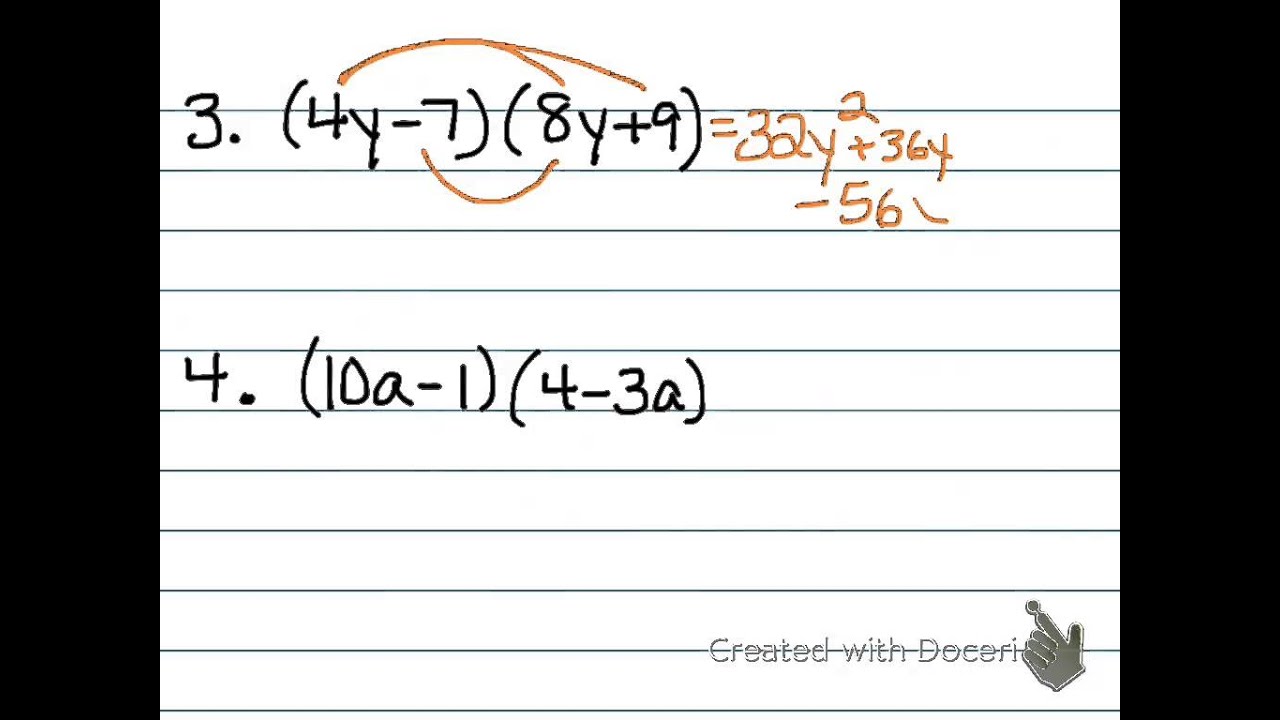 3. (4y-7)(8y+9)=32y²+36y
-56
4. (10a-1)(4-3a)
Created with Doceri